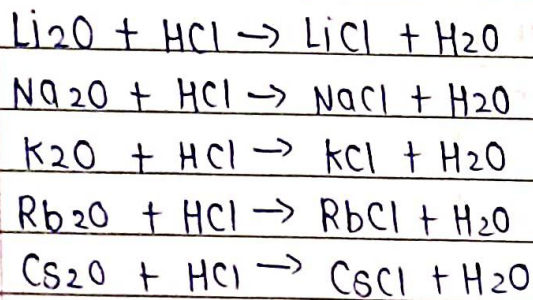 Li2O + HCl → LiCl + H2O
Na2O + HCl → NaCl + H2O
K2O + HCl → KCl + H2O
Rb2O + HCl → RbCl + H2O
Cs2O + HCl → CsCl + H2O